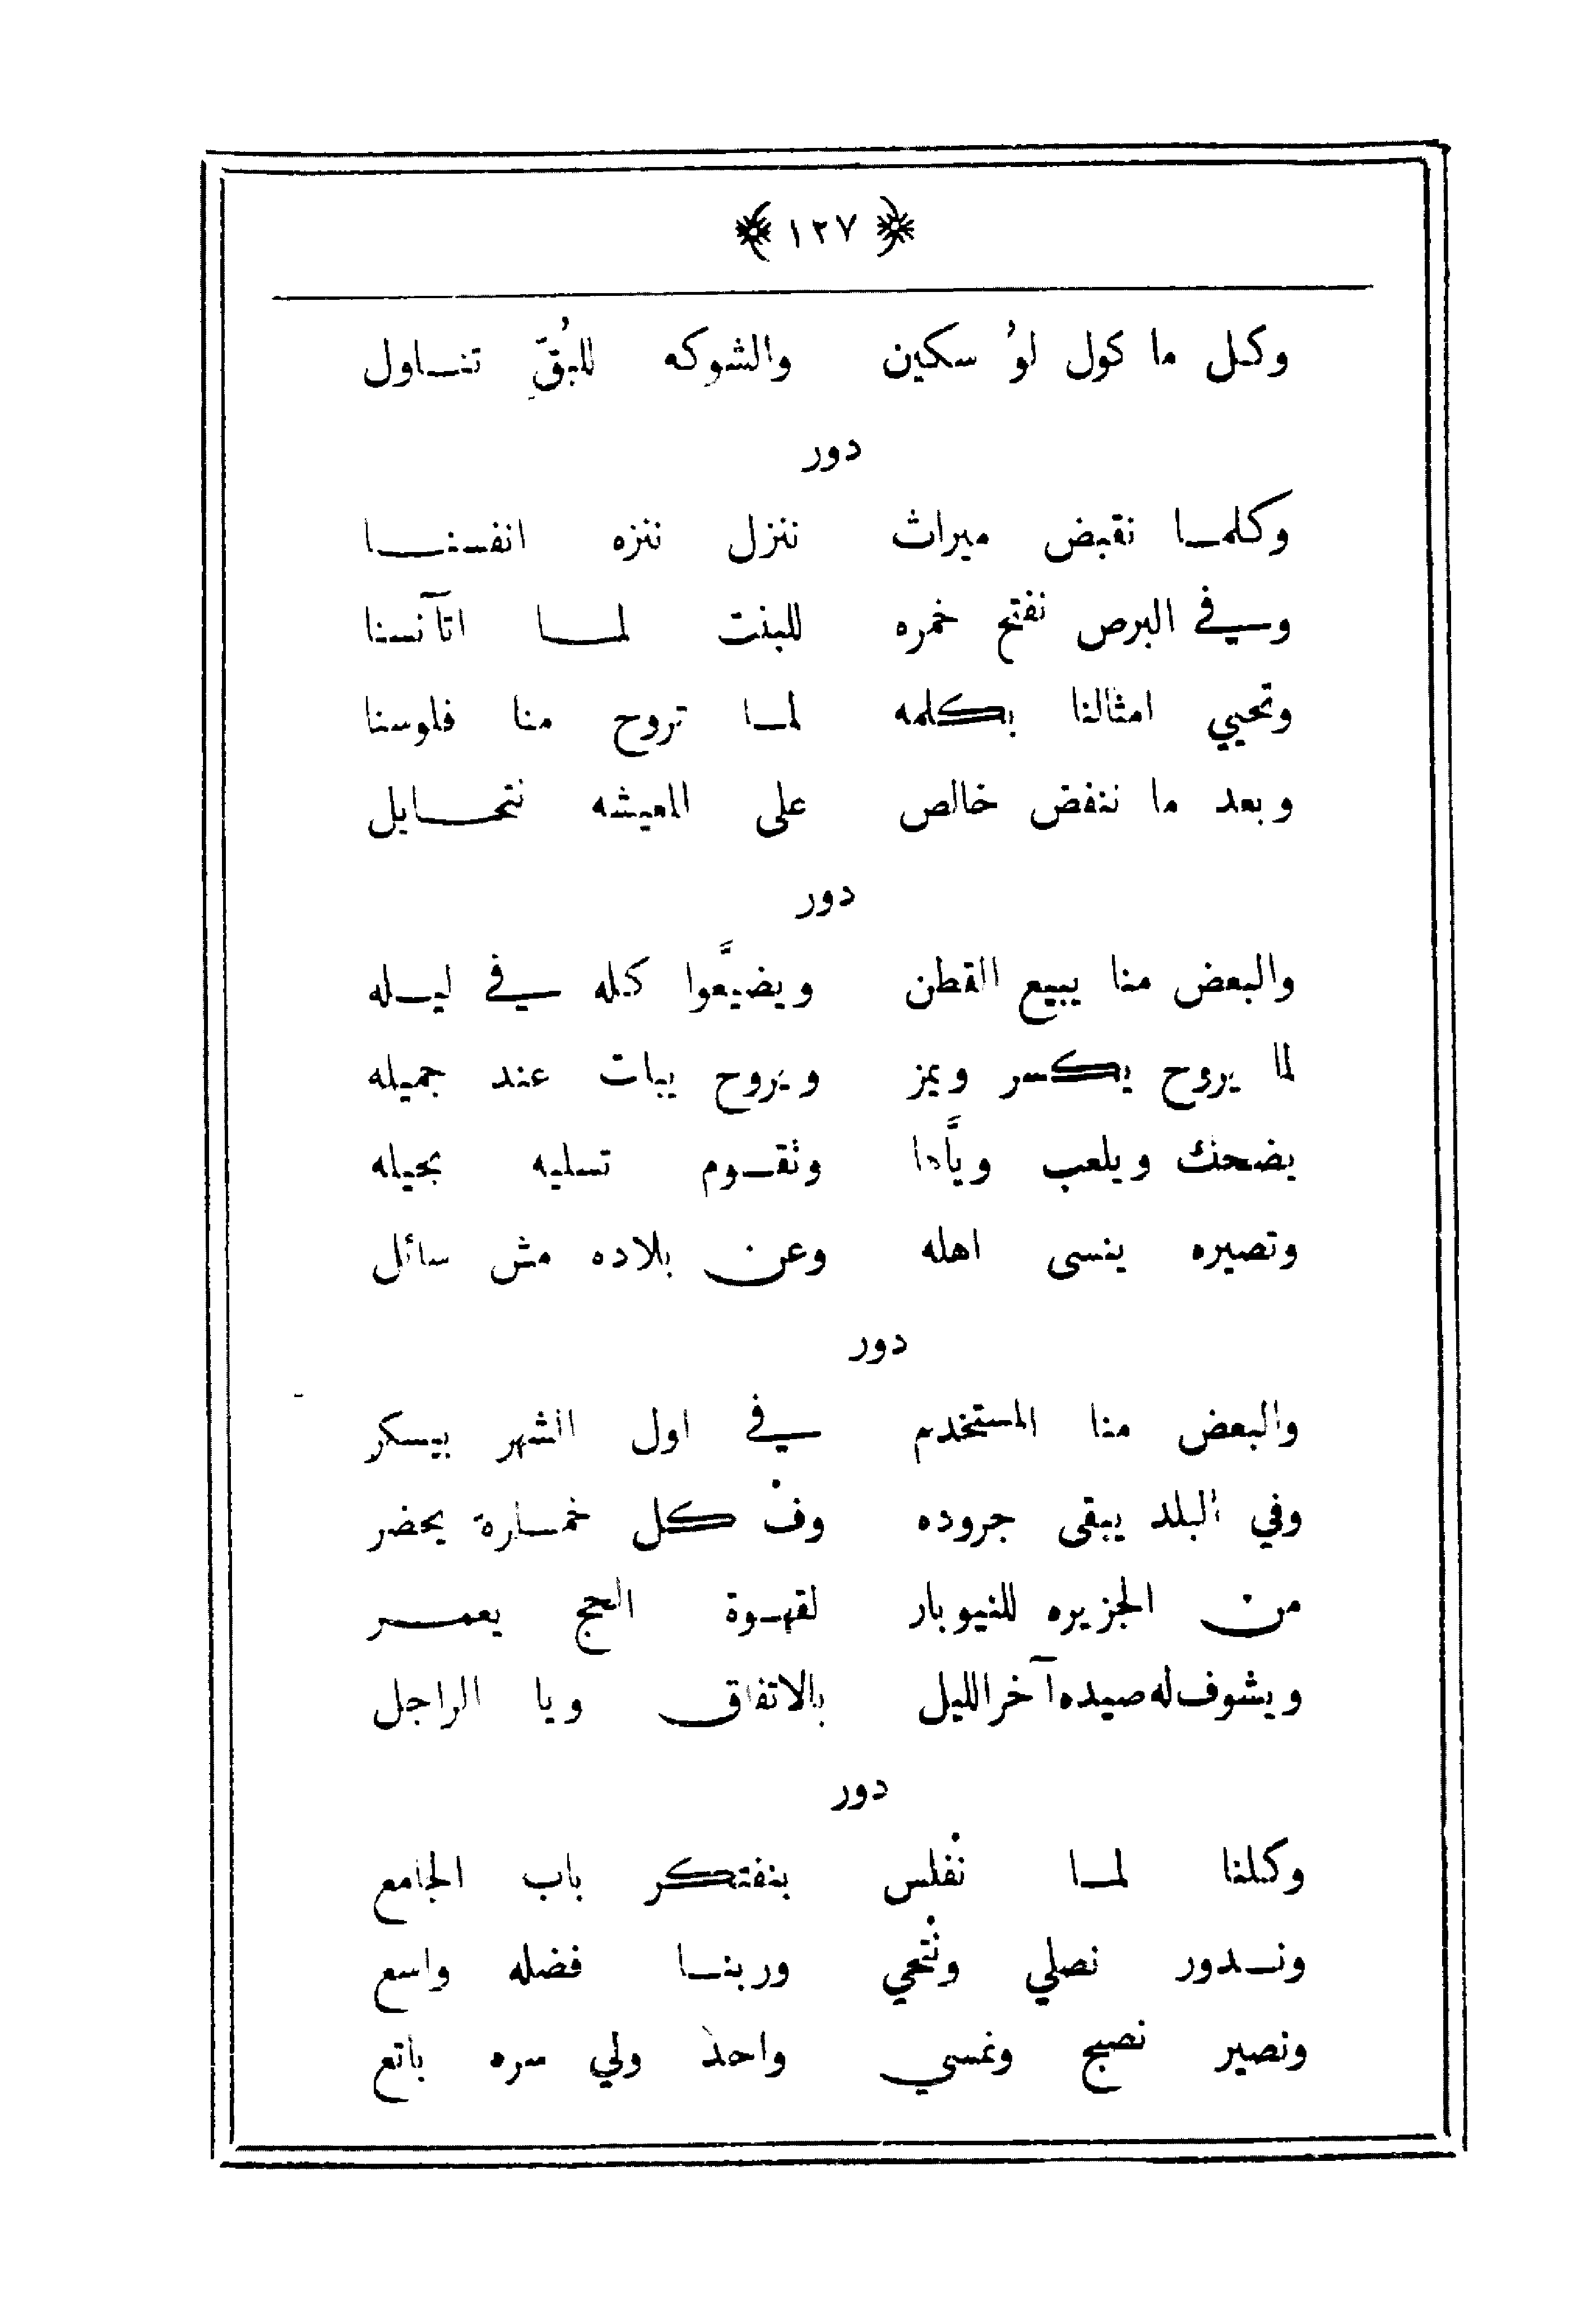 ﴿ ١٢٧ ﴾
وكل ما كول لوُ سكين والشوكه للبُقّ تناول
دور
وكلما نقبض ميراث ننزل ننزه انفسنا
وفي البرص نفتح خمره للبنت لما اتآنسنا
وتحيي امثالنا بكلمه لما تروح منا فلوسنا
وبعد ما ننفض خالص على المعيشه نتحايل
دور
والبعض منا يبيع القطن ويضيَّعوا كله في ليله
لما يروح يكسر ويمز ويروح يبات عند جميله
يضحك ويلعب ويَّاها وتقوم تسليه بحيله
وتصيره ينسى اهله وعن بلاده مش سائل
دور
والبعض منا المستخدم في اول الشهر بيسكر
وفي البلد يبقى جروده وفْ كل خمارة يحضر
من الجزيره للنيوبار لقهوة الحج يعمر
ويشوف له صيده آخر الليل بالاتفاق ويا الراجل
دور
وكلنا لما نْفلس بنفتكر باب الجامع
وندور نصلي ونْتحي وربنا فضله واسع
ونصير نصبح ونمسي واحد ولي سره باتع